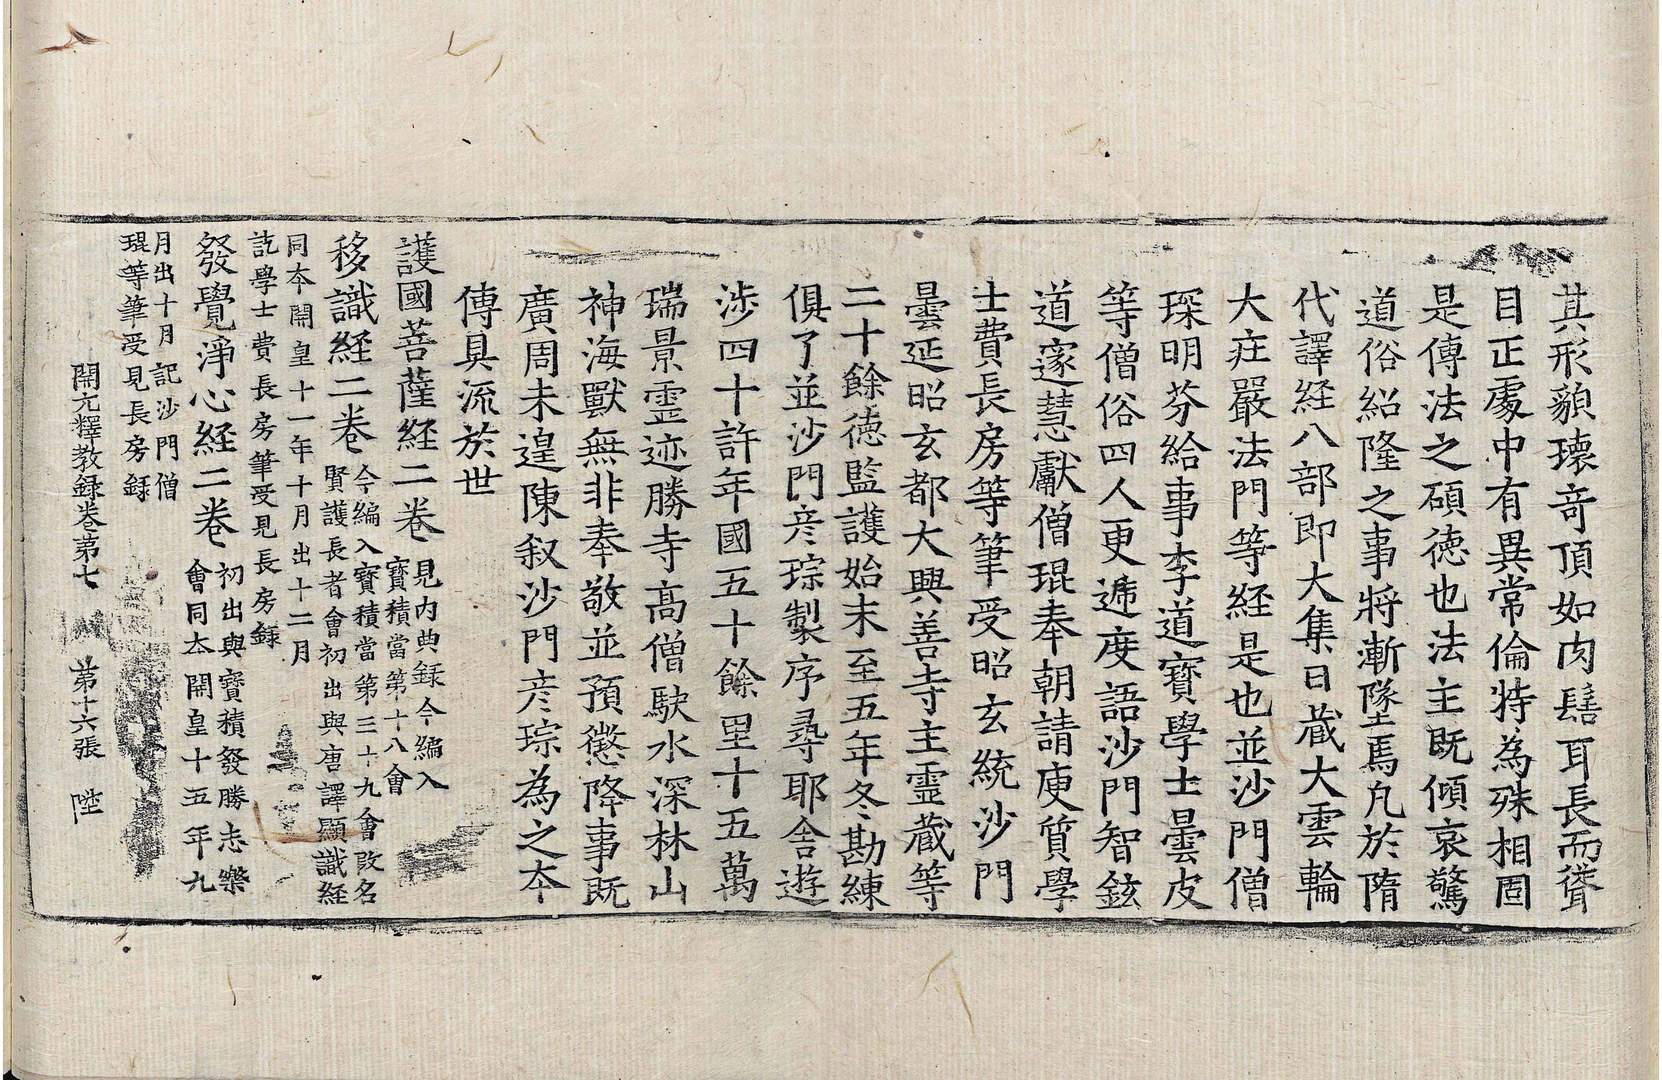 其形貌瓌奇頂如肉髻耳長而聳
目正處中有異常倫特為殊相固
是傳法之碩德也法主既傾哀驚
道俗紹隆之事將漸墜焉凡於隋
代譯経八部即大集日藏大雲輪
大莊嚴法門等経是也並沙門僧
琛明芬給事李道寶學士曇皮
等僧俗四人更遞度語沙門智鉉
道邃慧獻僧琨奉朝請庾質學
士費長房等筆受昭玄統沙門
曇延昭玄都大興善寺主靈藏等
二十餘德監護始末至五年冬勘練
俱了並沙門彦琮製序尋耶舍遊
涉四十許年國五十餘里十五萬
瑞景靈迹勝寺高僧駛水深林山
神海獸無非奉敬並預懲降事既
廣周未遑陳叙沙門彦琮為之本
傳具流於世
護國菩薩経二卷 見内典録今編入
寶積當第十八會
移識経二卷 今編入寶積當第三十九會改名
賢護長者會初出與唐譯顯識経
同本開皇十一年十月出十二月
訖學士費長房筆受見長房録
發覺淨心経二卷 初出與寶積發勝志樂
會同本開皇十五年九
月出十月記沙門僧
琨等筆受見長房録
開元釋教録卷第七 第十六張 陞